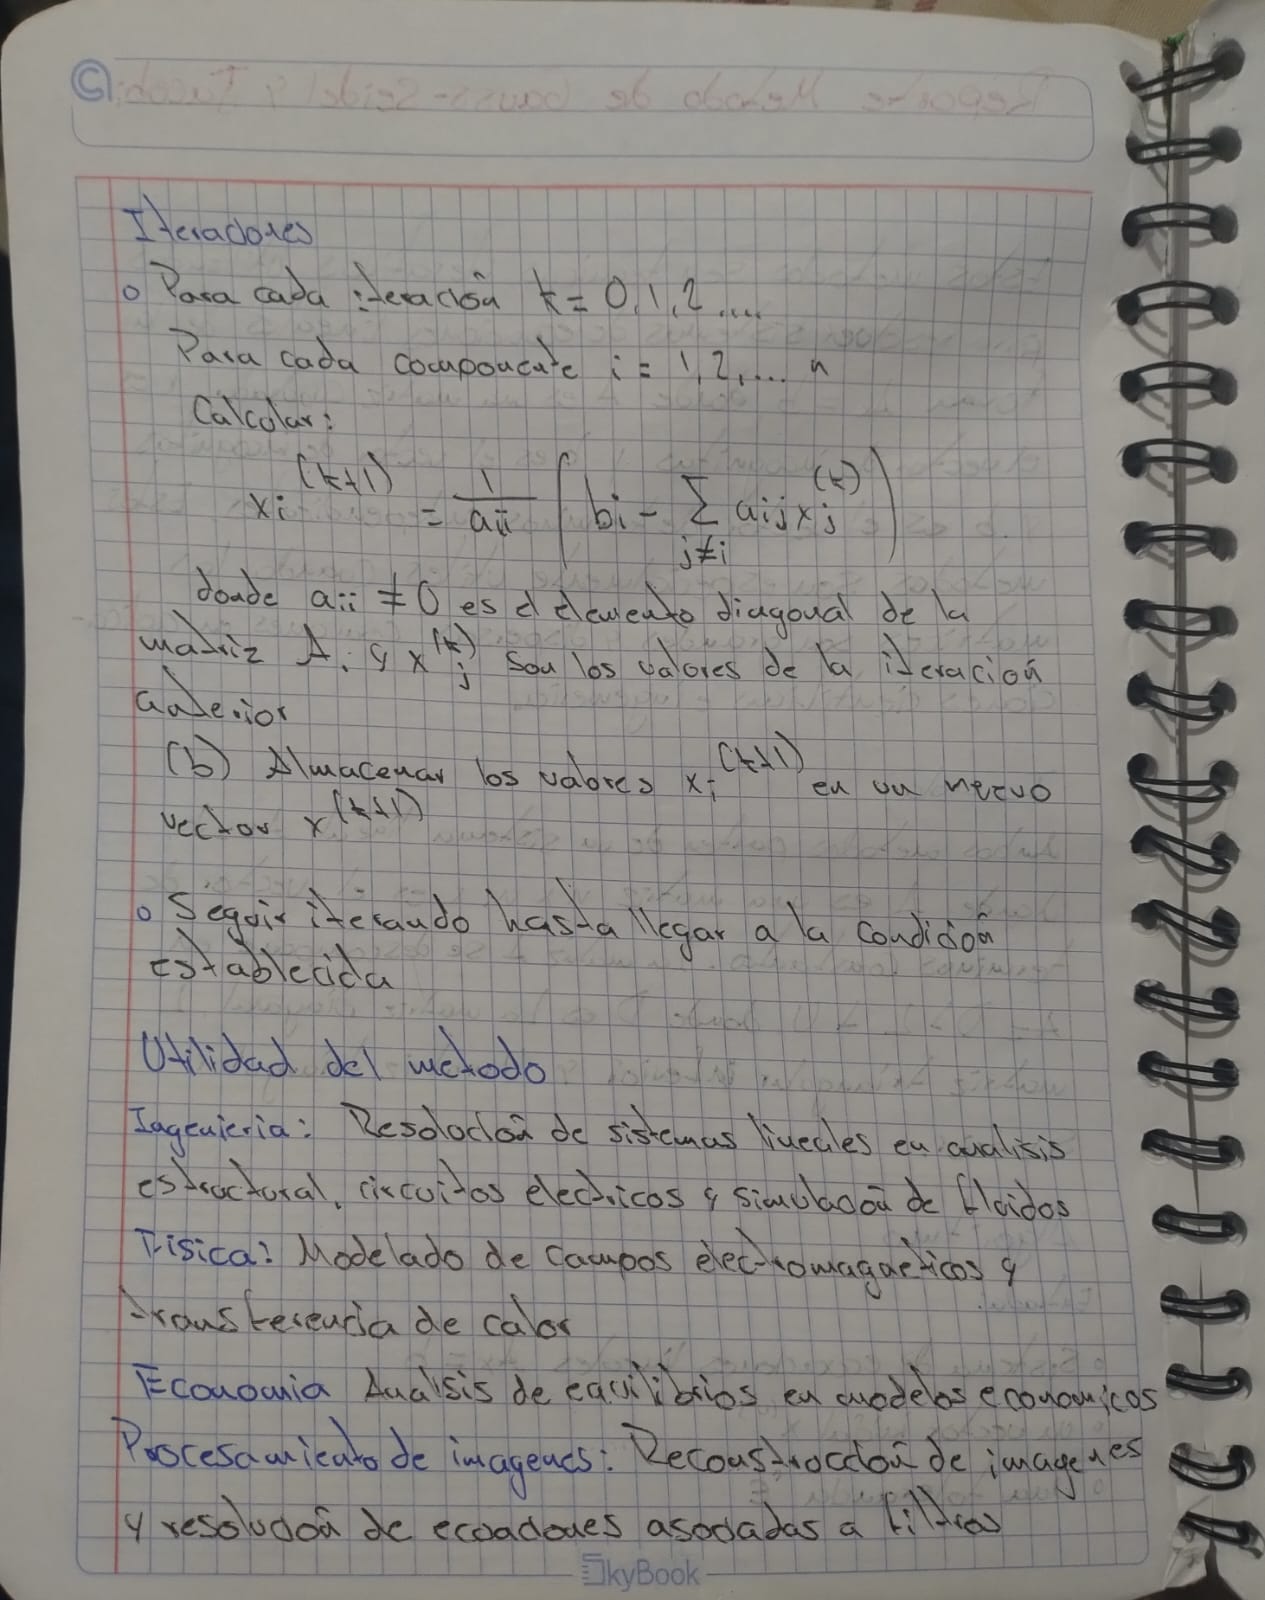 Iteradores
o Para cada iteración k = 0, 1, 2 ....
Para cada componente i = 1, 2, .... n
Calcular:
xi^(k+1) = 1/aii ( bi - ∑ j≠i aij xj^(k) )
donde aii ≠ 0 es el elemento diagonal de la
matriz A. y xj^(k) son los valores de la iteración
anterior
(b) Almacenar los valores xi^(k+1) en un nuevo
vector x^(k+1)
o Seguir iterando hasta llegar a la condición
establecida
Utilidad del metodo
Ingenieria: Resolución de sistemas lineales en analisis
estructural, circuitos electricos y simulación de fluidos
Fisica: Modelado de campos electromagneticos y
transferencia de calor
Economia Analisis de equilibrios en modelos economicos
Procesamiento de imagenes: Reconstrucción de imagenes
y resolución de ecuaciones asociadas a filtros
SkyBook